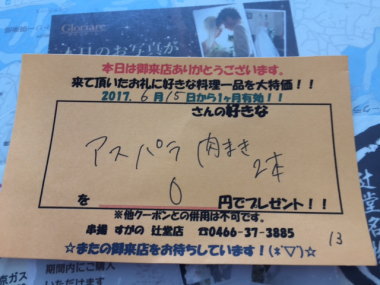 Gloriare
本日のお写真が
本日は御来店ありがとうございます。
来て頂いたお礼に好きな料理一品を大特価！！
2017. 6月 15日から1ヶ月有効！！
さんの好きな
アスパラ 肉まき 2本
を 0 円でプレゼント！！
※他クーポンとの併用は不可です。
串揚 すがの 辻堂店 ☎0466-37-3885
☆またの御来店をお待ちしています！(*´▽`)☆
13
辻堂
期間内にご購入
いただきます